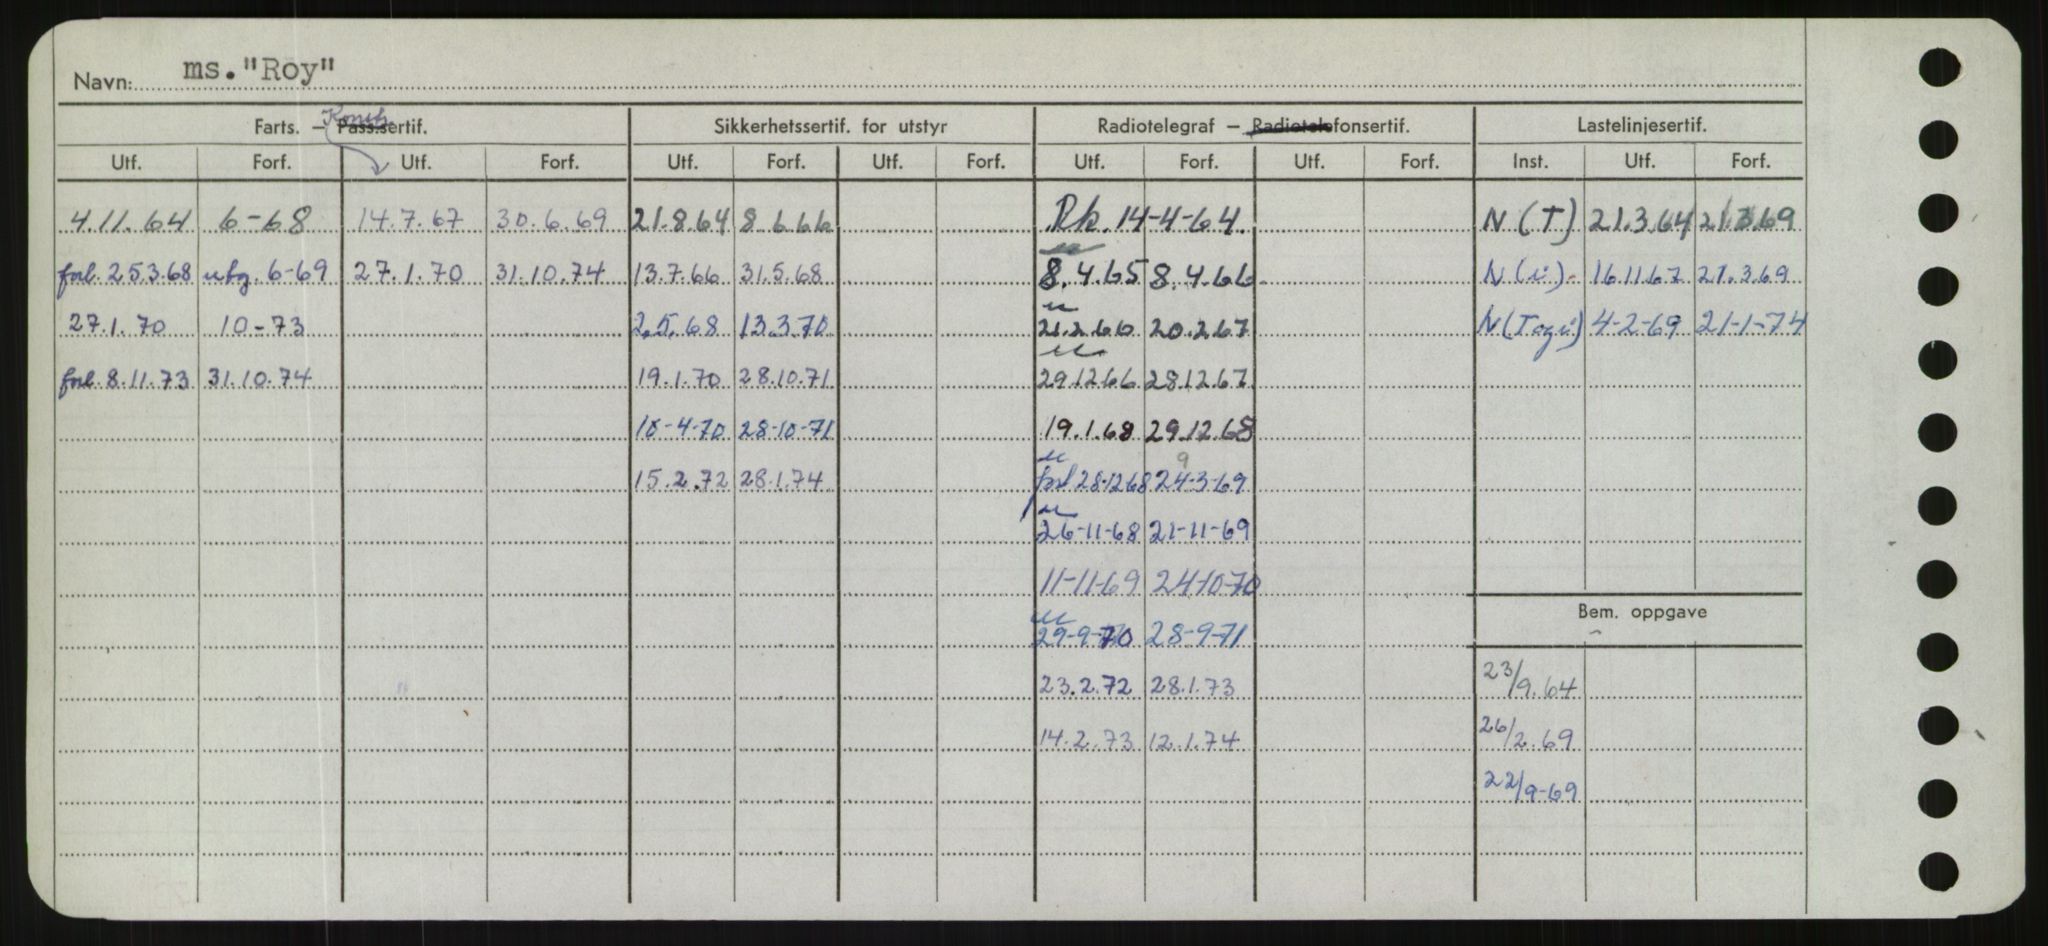 Navn: ms. "Roy"
Farts. – Konstr. Pass.sertif. Sikkerhetssertif. for utstyr Radiotelegraf – Radiotelefonsertif. Lastelinjesertif.
Utf. Forf. Utf. Forf. Utf. Forf. Utf. Forf. Utf. Forf. Utf. Forf. Inst. Utf. Forf.
4.11.64 6-68 14.7.67 30.6.69 21.8.64 8.6.66 Rk. 14-4-64. N(T) 21.3.64 21.3.69
forl. 25.3.68 utg. 6-69 27.1.70 31.10.74 13.7.66 31.5.68 8.4.65 8.4.66 N(u) 16.11.67 21.3.69
27.1.70 10-73 2.5.68 13.3.70 21.2.66 20.2.67 N(Togu) 4-2-69 21-1-74
forl. 8.11.73 31.10.74 19.1.70 28.10.71 29.12.66 28.12.67
10-4-70 28-10-71 19.1.68 29.12.68
9
15.2.72 28.1.74 forl 28-12-68 24-3-69
26-11-68 21-11-69
11-11-69 24-10-70
Bem. oppgave
29-9-70 28-9-71
23.2.72 28.1.73 23/9.64
14.2.73 12.1.74 26/2.69
22/9-69